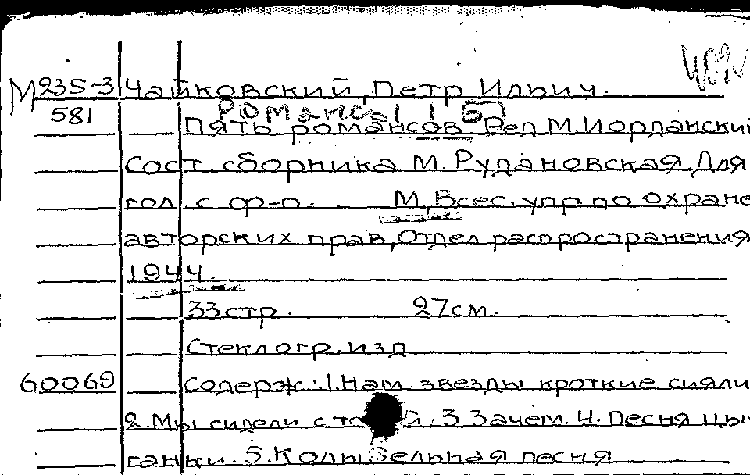 М235-3 Чайковский, Петр Ильич.
581 Романсы
Пять романсов. Ред. М. Иорданский
Сост. сборника М. Рудановская. Для
гол. с ф-п. М., Всес. упр. по охране
авторских прав, Отдел распространения
1944.
33 стр. 27 см.
Стеклогр. изд.
60069 Содерж.: 1. Нам звезды кроткие сияли
2. Мы сидели с то й. 3. Зачем. 4. Песня цы-
ганки. 5. Колыбельная песня